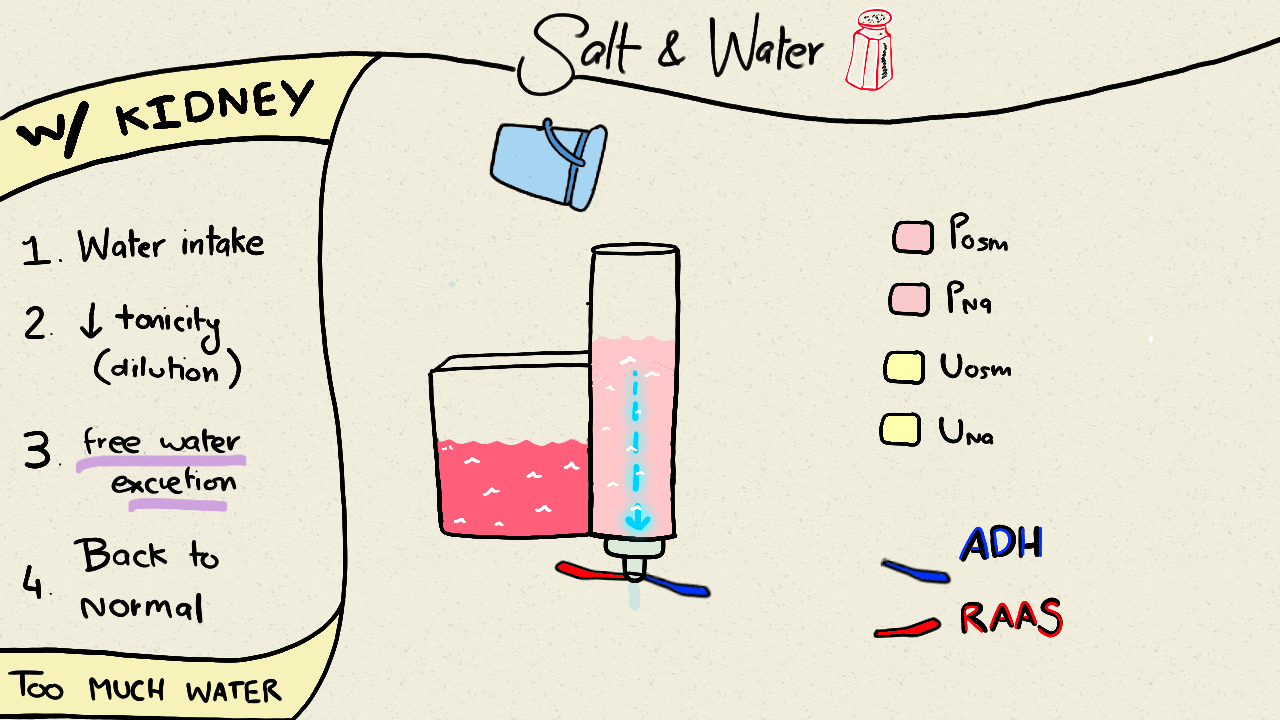 Salt & Water
W/ KIDNEY
1. Water intake
2. ↓ tonicity
(dilution)
3. free water
excretion
4. Back to
normal
TOO MUCH WATER
POsm
PNa
UOsm
UNa
ADH
RAAS